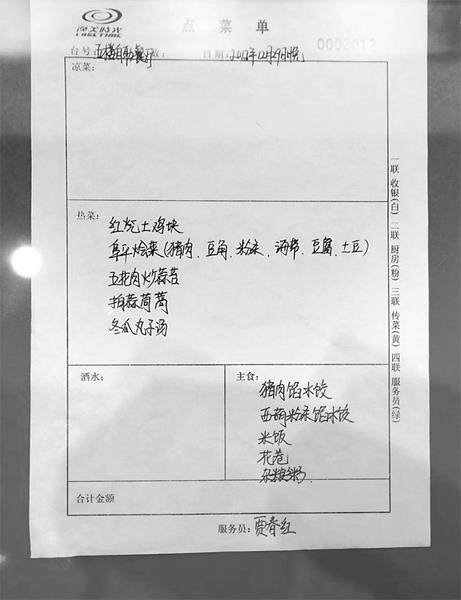 点菜单
LAKE TIME
0002012
台号:五楼自助餐厅 日期:2012年12月29日晚
凉菜:
热菜:
红烧土鸡块
阜平烩菜(猪肉、豆角、粉条、海带、豆腐、土豆)
五花肉炒蒜苔
拍蒜茼蒿
冬瓜丸子汤
酒水:
主食:
猪肉馅水饺
西葫粉条馅水饺
米饭
花卷
杂粮粥
合计金额
服务员:贾春红
一联 收银(白) 二联 厨房(粉) 三联 传菜(黄) 四联 服务员(绿)